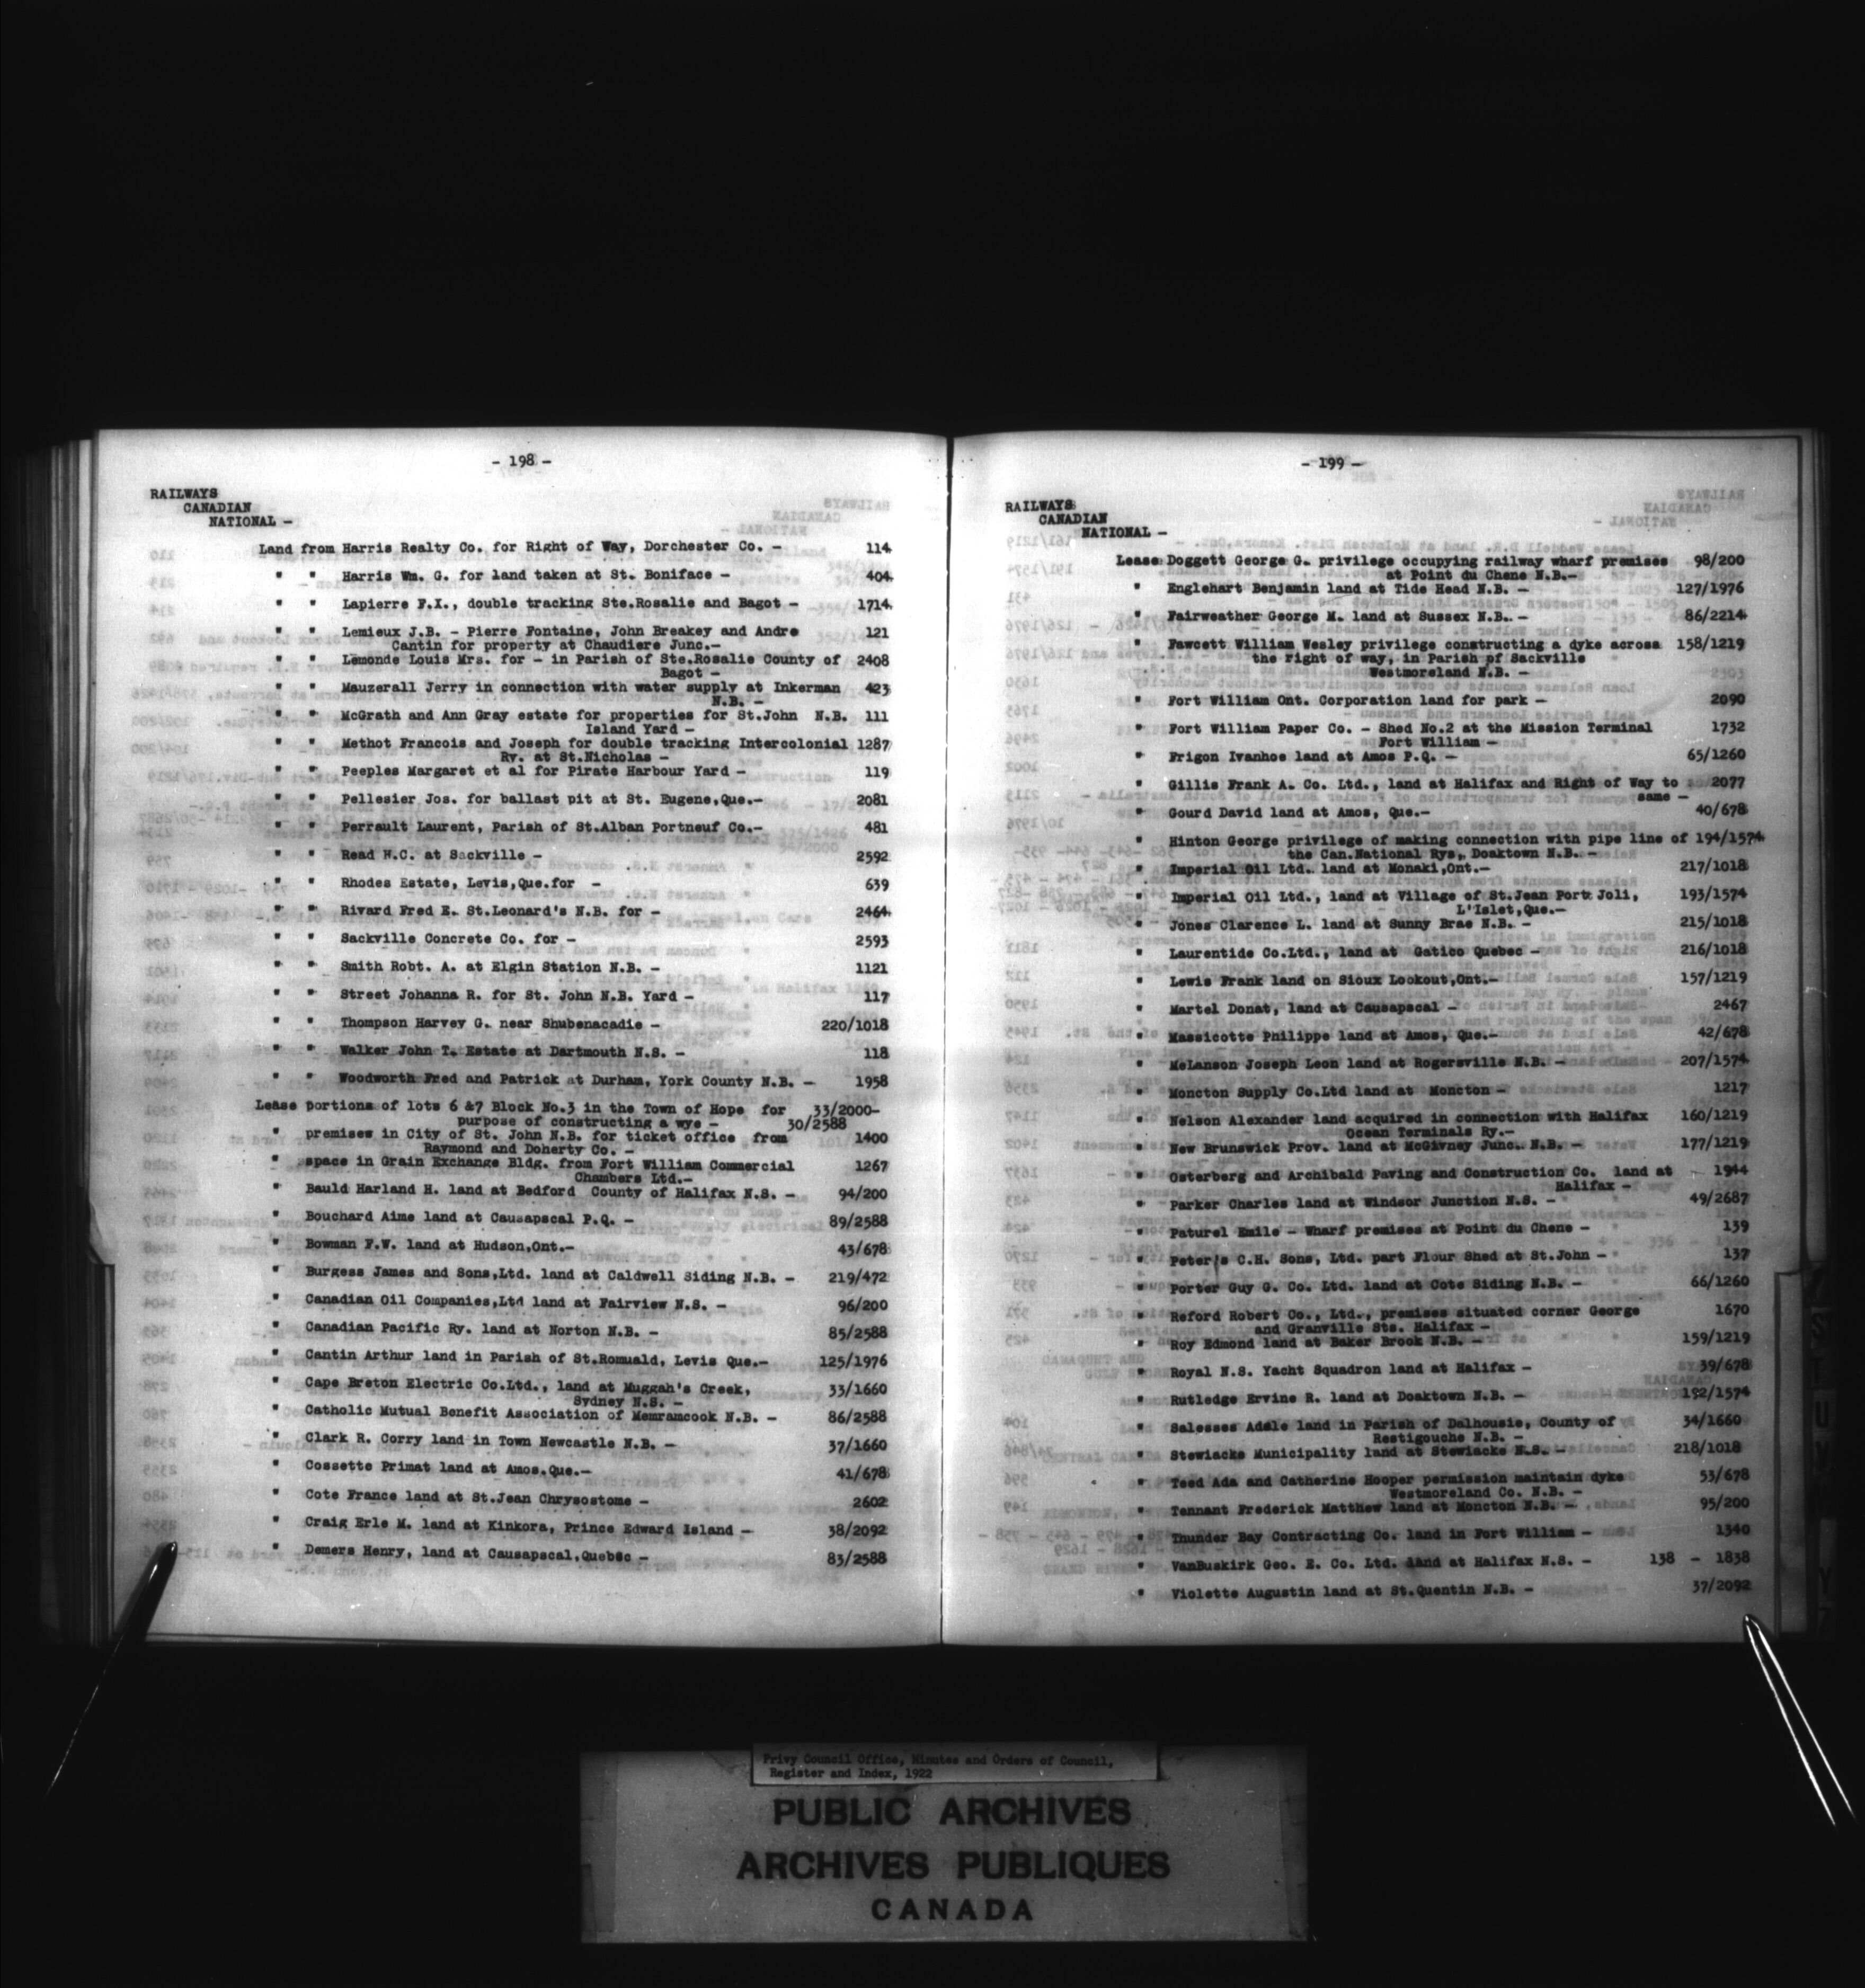 - 198 -
RAILWAYS
CANADIAN
NATIONAL -
Land from Harris Realty Co. for Right of Way, Dorchester Co. - 114
" " Harris Wm. G. for land taken at St. Boniface - 404
" " Lapierre F.X., double tracking Ste.Rosalie and Bagot - 1714
" " Lemieux J.B. - Pierre Fontaine, John Breakey and Andre 121
Cantin for property at Chaudiere Junc.-
" " Lemonde Louis Mrs. for - in Parish of Ste.Rosalie County of 2408
Bagot -
" " Mauzerall Jerry in connection with water supply at Inkerman 423
N.B. -
" " McGrath and Ann Gray estate for properties for St.John N.B. 111
Island Yard -
" " Methot Francois and Joseph for double tracking Intercolonial 1287
Ry. at St.Nicholas -
" " Peeples Margaret et al for Pirate Harbour Yard - 119
" " Pellesier Jos. for ballast pit at St. Eugene,Que.- 2081
" " Perrault Laurent, Parish of St.Alban Portneuf Co.- 481
" " Read H.C. at Sackville - 2592
" " Rhodes Estate, Levis,Que.for - 639
" " Rivard Fred E. St.Leonard's N.B. for - 2464
" " Sackville Concrete Co. for - 2593
" " Smith Robt. A. at Elgin Station N.B. - 1121
" " Street Johanna R. for St. John N.B. Yard - 117
" " Thompson Harvey G. near Shubenacadie - 220/1018
" " Walker John T. Estate at Dartmouth N.S. - 118
" " Woodworth Fred and Patrick at Durham, York County N.B. - 1958
Lease portions of lots 6 &7 Block No.3 in the Town of Hope for 33/2000-
purpose of constructing a wye - 30/2588
" premises in City of St. John N.B. for ticket office from 1400
Raymond and Doherty Co. -
" space in Grain Exchange Bldg. from Fort William Commercial 1267
Chambers Ltd.-
" Bauld Harland H. land at Bedford County of Halifax N.S. - 94/200
" Bouchard Aime land at Causapscal P.Q. - 89/2588
" Bowman F.W. land at Hudson,Ont.- 43/678
" Burgess James and Sons,Ltd. land at Caldwell Siding N.B. - 219/472
" Canadian Oil Companies,Ltd land at Fairview N.S. - 96/200
" Canadian Pacific Ry. land at Norton N.B. - 85/2588
" Cantin Arthur land in Parish of St.Romuald, Levis Que.- 125/1976
" Cape Breton Electric Co.Ltd., land at Muggah's Creek, 33/1660
Sydney N.S. -
" Catholic Mutual Benefit Association of Memramcook N.B. - 86/2588
" Clark R. Corry land in Town Newcastle N.B. - 37/1660
" Cossette Primat land at Amos.Que.- 41/678
" Cote France land at St.Jean Chrysostome - 2602
" Craig Erle M. land at Kinkora, Prince Edward Island - 38/2092
" Demers Henry, land at Causapscal,Quebec - 83/2588
- 199 -
RAILWAYS
CANADIAN
NATIONAL -
Lease Doggett George G. privilege occupying railway wharf premises 98/200
at Point du Chene N.B.-
" Englehart Benjamin land at Tide Head N.B. - 127/1976
" Fairweather George M. land at Sussex N.B. - 86/2214
" Fawcett William Wesley privilege constructing a dyke across 158/1219
the right of way, in Parish of Sackville
Westmoreland N.B. -
" Fort William Ont. Corporation land for park - 2090
" Fort William Paper Co. - Shed No.2 at the Mission Terminal 1732
Fort William -
" Frigon Ivanhoe land at Amos P.Q. - 65/1260
" Gillis Frank A. Co. Ltd., land at Halifax and Right of Way to 2077
same -
" Gourd David land at Amos, Que.- 40/678
" Hinton George privilege of making connection with pipe line of 194/1574
the Can.National Rys, Doaktown N.B. -
" Imperial Oil Ltd. land at Monaki,Ont.- 217/1018
" Imperial Oil Ltd., land at Village of St.Jean Port Joli, 193/1574
L'Islet,Que.-
" Jones Clarence L. land at Sunny Brae N.B. - 215/1018
" Laurentide Co.Ltd., land at Gatico Quebec - 216/1018
" Lewis Frank land on Sioux Lookout,Ont.- 157/1219
" Martel Donat, land at Causapscal - 2467
" Massicotte Philippe land at Amos, Que.- 42/678
" McLanson Joseph Leon land at Rogersville N.B. - 207/1574
" Moncton Supply Co.Ltd land at Moncton - 1217
" Nelson Alexander land acquired in connection with Halifax 160/1219
Ocean Terminals Ry.-
" New Brunswick Prov. land at McGivney Junc. N.B. - 177/1219
" Osterberg and Archibald Paving and Construction Co. land at 1944
Halifax -
" Parker Charles land at Windsor Junction N.S. - 49/2687
" Paturel Emile - Wharf premises at Point du Chene - 139
" Peter's C.H. Sons, Ltd. part Flour Shed at St.John - 137
" Porter Guy G. Co. Ltd. land at Cote Siding N.B. - 66/1260
" Reford Robert Co., Ltd., premises situated corner George 1670
and Granville Sts. Halifax -
" Roy Edmond land at Baker Brook N.B. - 159/1219
" Royal N.S. Yacht Squadron land at Halifax - 39/678
" Rutledge Ervine R. land at Doaktown N.B. - 192/1574
" Salesses Adale land in Parish of Dalhousie, County of 34/1660
Restigouche N.B. -
" Stewiacke Municipality land at Stewiacke N.S. - 218/1018
" Teed Ada and Catherine Hooper permission maintain dyke 53/678
Westmoreland Co. N.B. -
" Tennant Frederick Matthew land at Moncton N.B. - 95/200
" Thunder Bay Contracting Co. land in Fort William - 1340
" VanBuskirk Geo. E. Co. Ltd. land at Halifax N.S. - 138 - 1838
" Violette Augustin land at St.Quentin N.B. - 37/2092
Privy Council Office, Minutes and Orders of Council,
Register and Index, 1922
PUBLIC ARCHIVES
ARCHIVES PUBLIQUES
CANADA